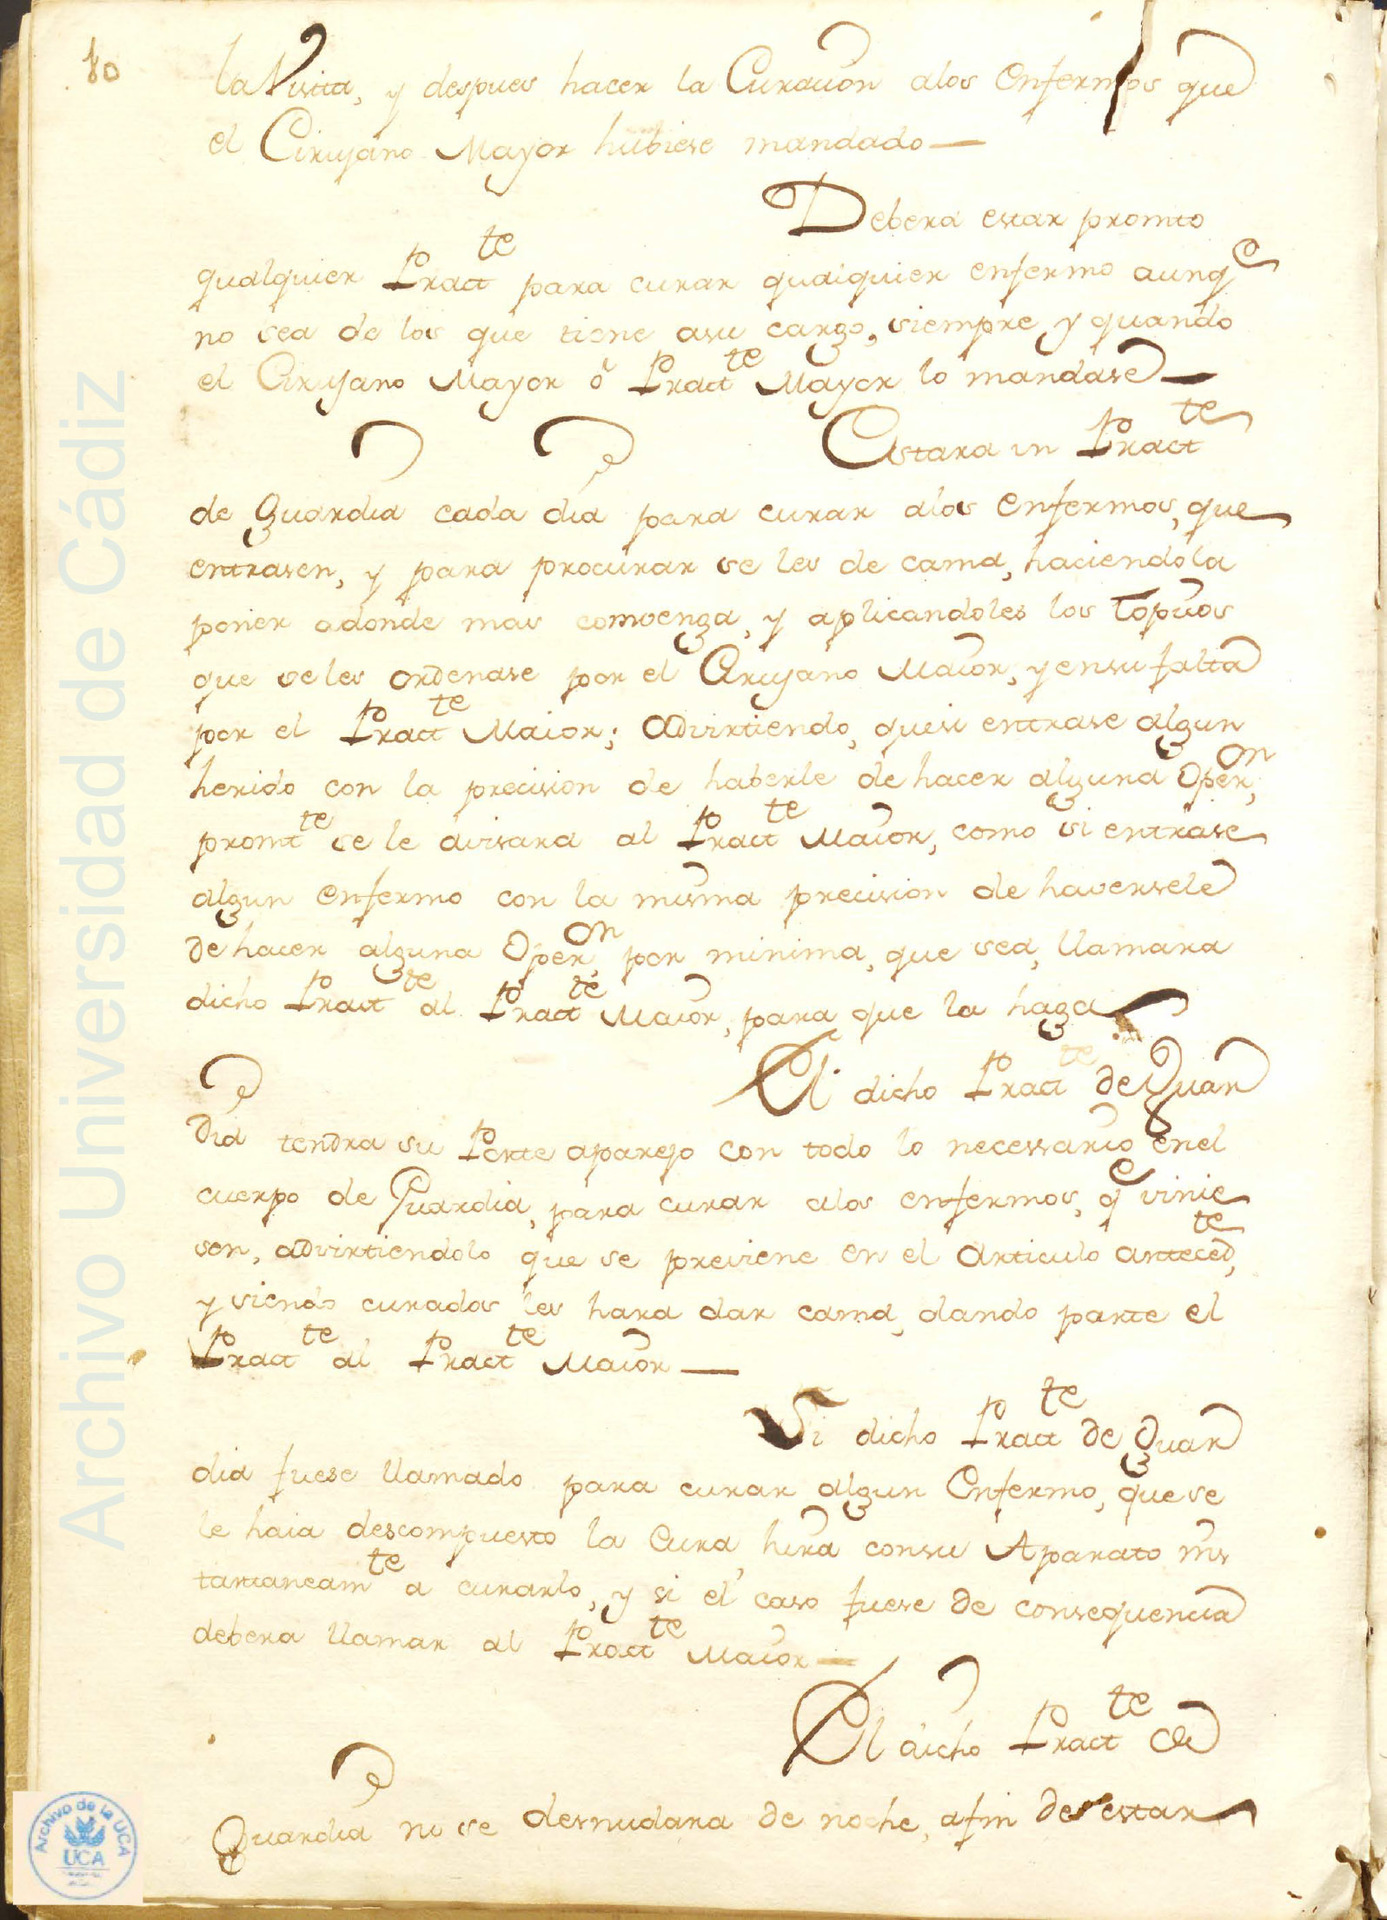 80
la Visita, y despues hacer la Curacion alos Enfermos que
el Cirujano Mayor hubiese mandado —
Debera estar promto
qualquier Practte para curar qualquier enfermo aunqe
no sea de los que tiene asu cargo, siempre y quando
el Cirujano Mayor ô Practte Mayor lo mandase —
Estara un Practte
de guardia cada dia para curar alos Enfermos, que
entrasen, y para procurar se les de cama, haciendola
poner adonde mas comvenga, y aplicandoles los Topicos
que seles ordenase por el Cirujano Maior, y ensu falta
por el Practte Maior; advirtiendo, quesi entrase algun
herido con la precision de haberle de hacer alguna Operon,
promtte se le avisara al Practte Maior, como si entrase
algun enfermo con la misma precision de haversele
de hacer alguna Operon, por minima, que sea, llamara
dicho Practte al Practte Maior, para que la haga
El dicho Practte de Guar
dia tendra su Porte aparejo con todo lo necessario enel
cuerpo de Guardia, para curar alos enfermos, qe vinie
sen, advirtiendolo que se previene en el Articulo antecedte,
y siendo curados les hara dar cama, dando parte el
Practte al Practte Maior —
Si dicho Practte de Guar
dia fuese llamado para curar algun Enfermo, que se
le haia descompuesto la Cura hira consu Aparato ins
tantaneamte a curarlo, y si el caso fuese de consequencia
debera llamar al Practte Maior —
El dicho Practte de
Guardia no se desnudara de noche, afin de estar
Archivo Universidad de Cádiz
Archivo de la UCA
UCA